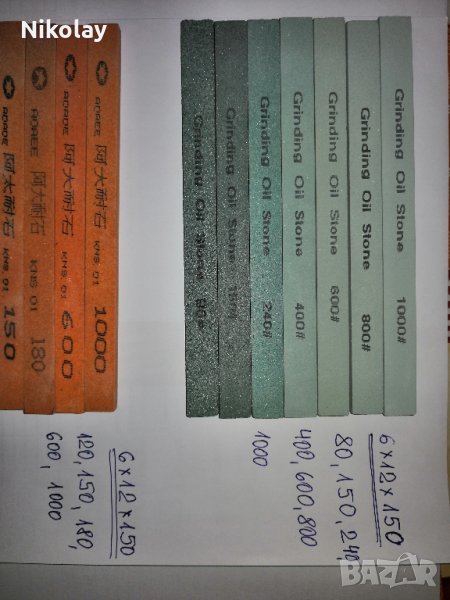 Nikolay
ADAEE 阿大耐石 KNS 01 150
ADAEE 阿大耐石 KNS 01 180
ADAEE 阿大耐石 KNS 01 600
ADAEE 阿大耐石 KNS 01 1000
Grinding Oil Stone 80#
Grinding Oil Stone 150#
Grinding Oil Stone 240#
Grinding Oil Stone 400#
Grinding Oil Stone 600#
Grinding Oil Stone 800#
Grinding Oil Stone 1000#
6 x 12 x 150
80, 150, 240,
400, 600, 800
1000
6 x 12 x 150
120, 150, 180,
600, 1000
bazar